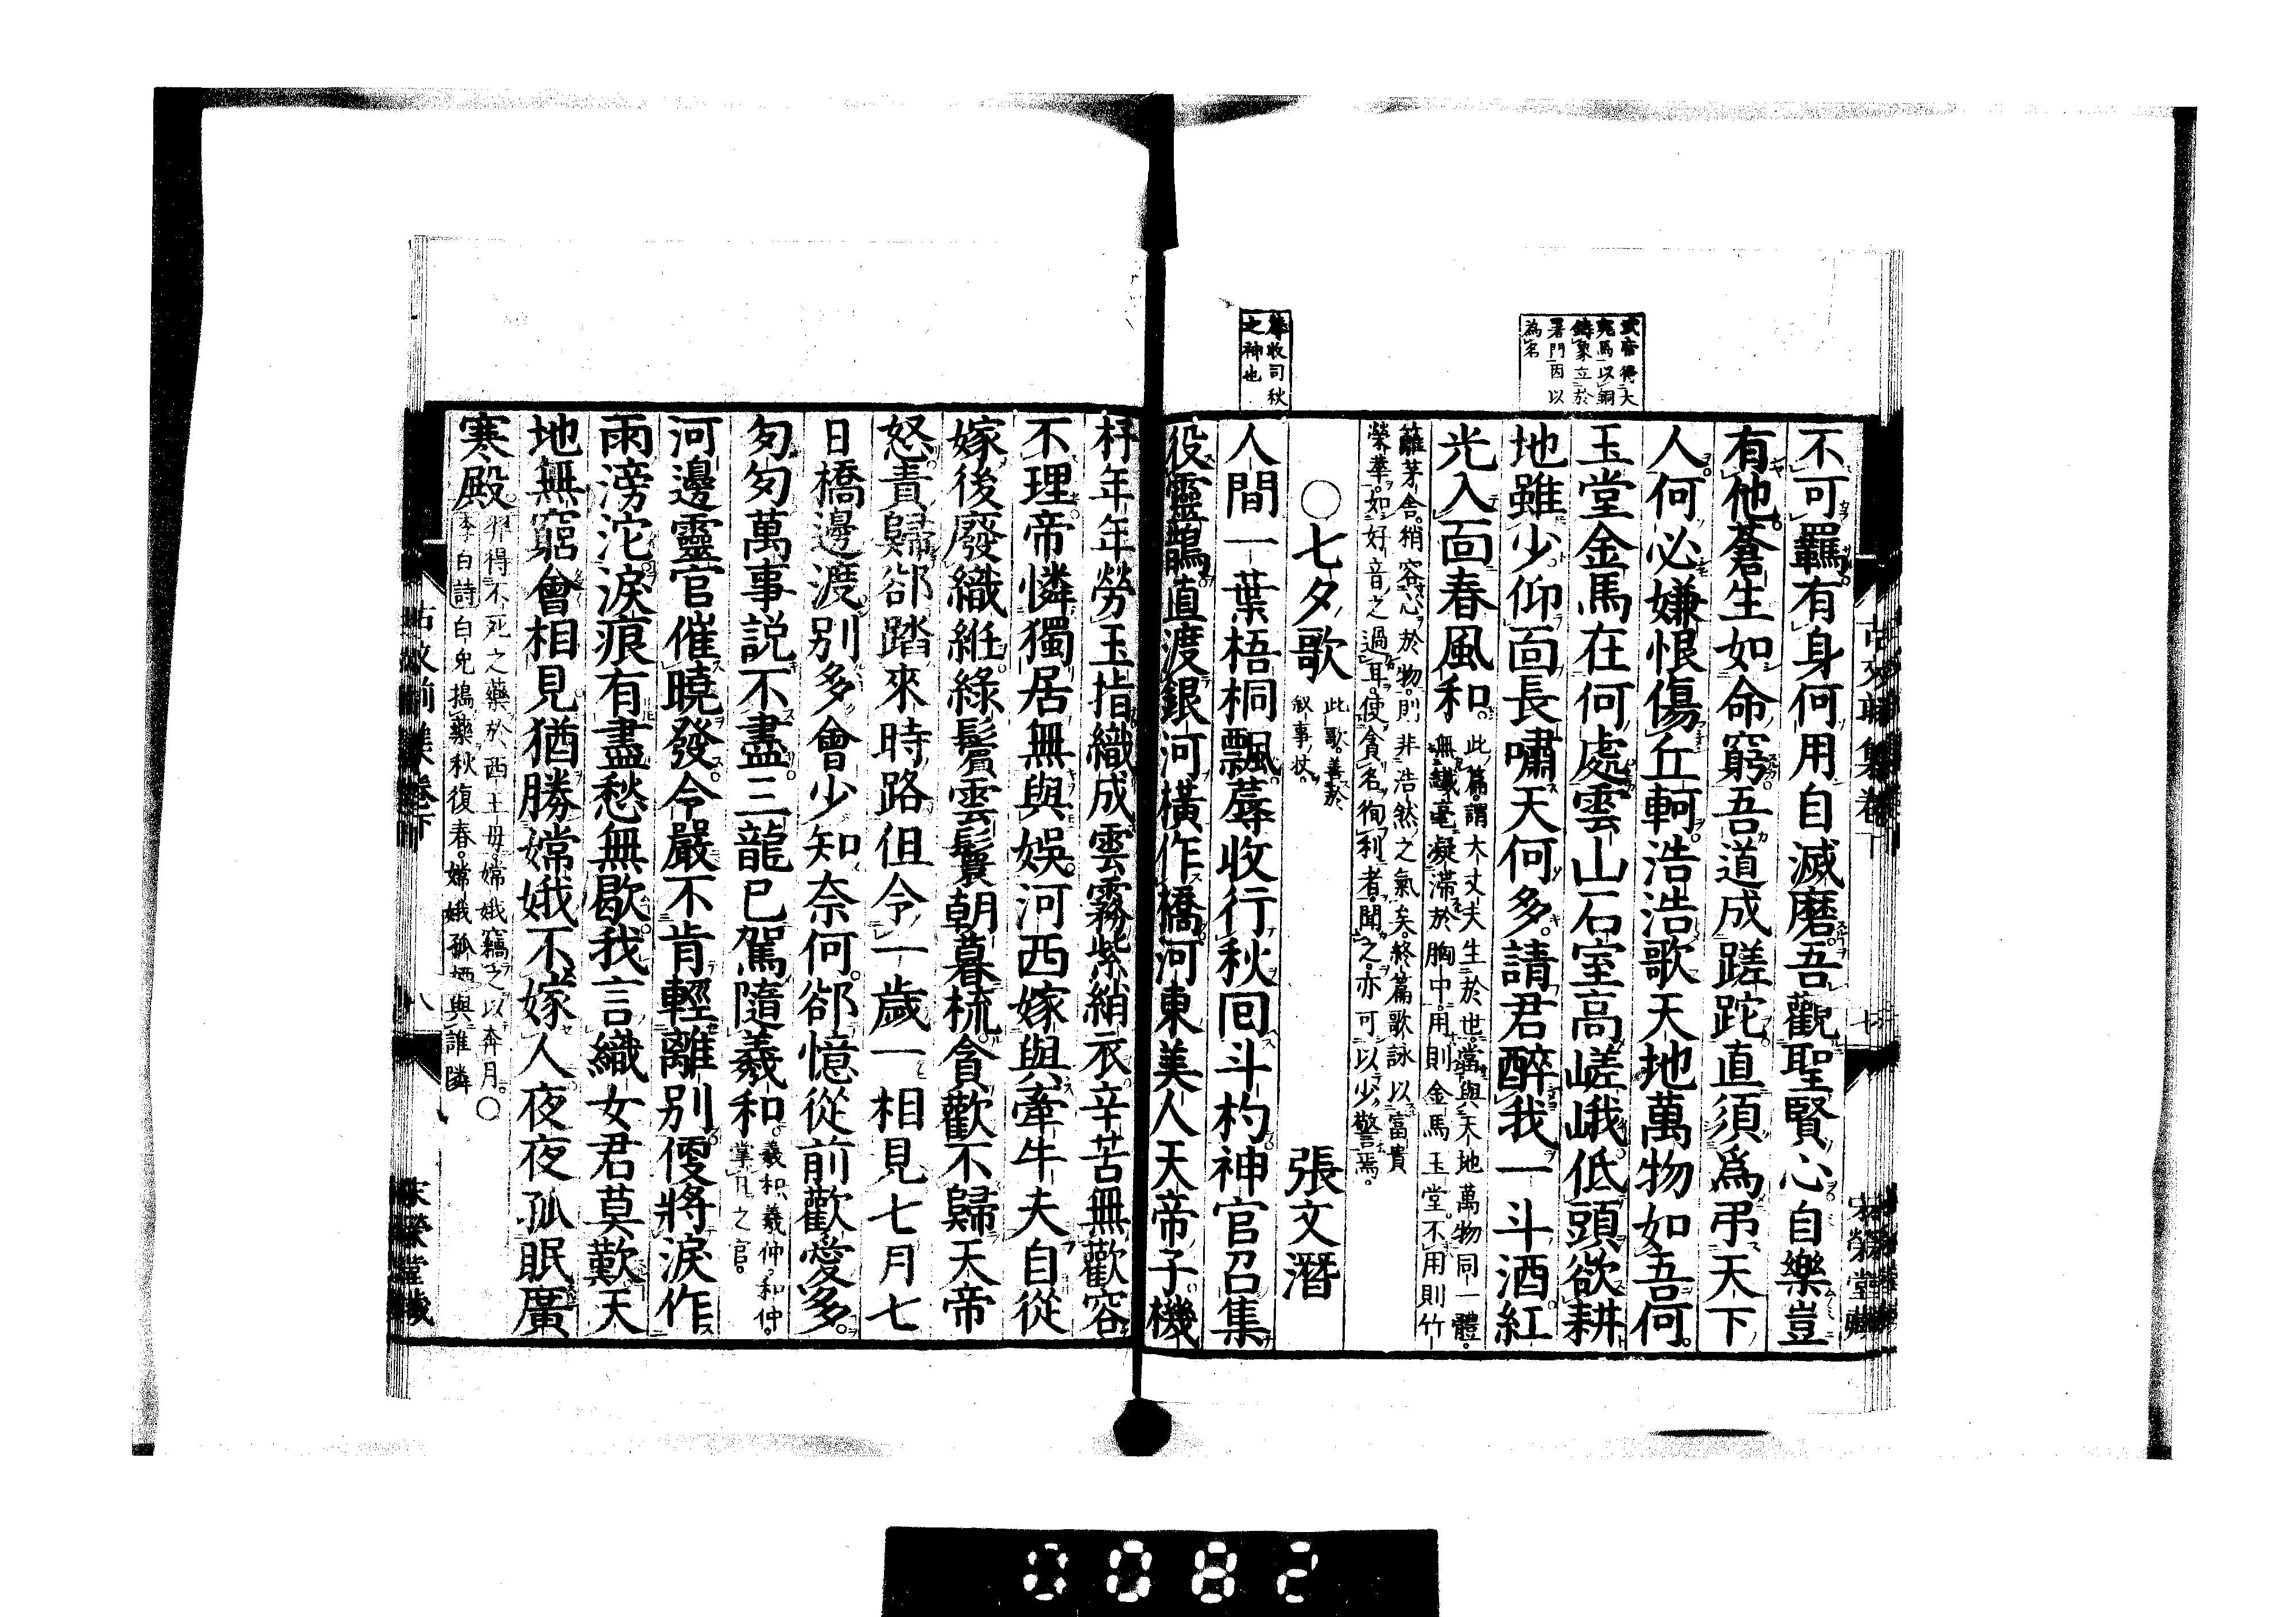 武帝得大
宛馬以銅
鑄象立於
署門因以
為名
蓐收司秋
之神也
不可羈有身何用自滅磨吾觀聖賢心自樂豈
有他蒼生如命窮吾道成蹉跎直須爲弔天下
人何必嫌恨傷丘軻浩浩歌天地萬物如吾何
玉堂金馬在何處雲山石室高嵯峨低頭欲耕
地雖少仰面長嘯天何多請君醉我一斗酒紅
光入面春風和
此篇謂大丈夫生於世當與天地萬物同一體
無纖毫凝滯於胸中用則金馬玉堂不用則竹
籬茅舎稍容心於物則非浩然之氣矣終篇歌詠以富貴
榮華如好音之過耳使貪名徇利者聞之亦可以少警焉
○七夕歌
此歌善於
叙事状
張文潛
人間一葉梧桐飄蓐收行秋回斗杓神官召集
役靈鵲直渡銀河横作橋河東美人天帝子機
杼年年勞玉指織成雲霧紫綃衣辛苦無歡容
不理帝憐獨居無與娯河西嫁與牽牛夫自從
嫁後廢織絍綠鬢雲鬟朝暮梳貪歡不歸天帝
怒責歸郤踏來時路但令一歲一相見七月七
日橋邊渡別多會少知奈何郤憶從前歡愛多
匆匆萬事説不盡三龍已駕隨羲和
羲和羲仲和仲
掌日之官
河邊靈官催曉發令嚴不肯輕離別便將淚作
雨滂沱淚痕有盡愁無歇我言織女君莫歎天
地無窮會相見猶勝嫦娥不嫁人夜夜孤眠廣
寒殿
羿得不死之藥於西王母嫦娥竊之以奔月○
李白詩白兎搗藥秋復春嫦娥孤栖與誰隣
古文前集卷下
八
宋榮堂藏